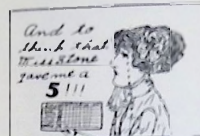 And to
think that
Miss Stone
gave me a
5!!!